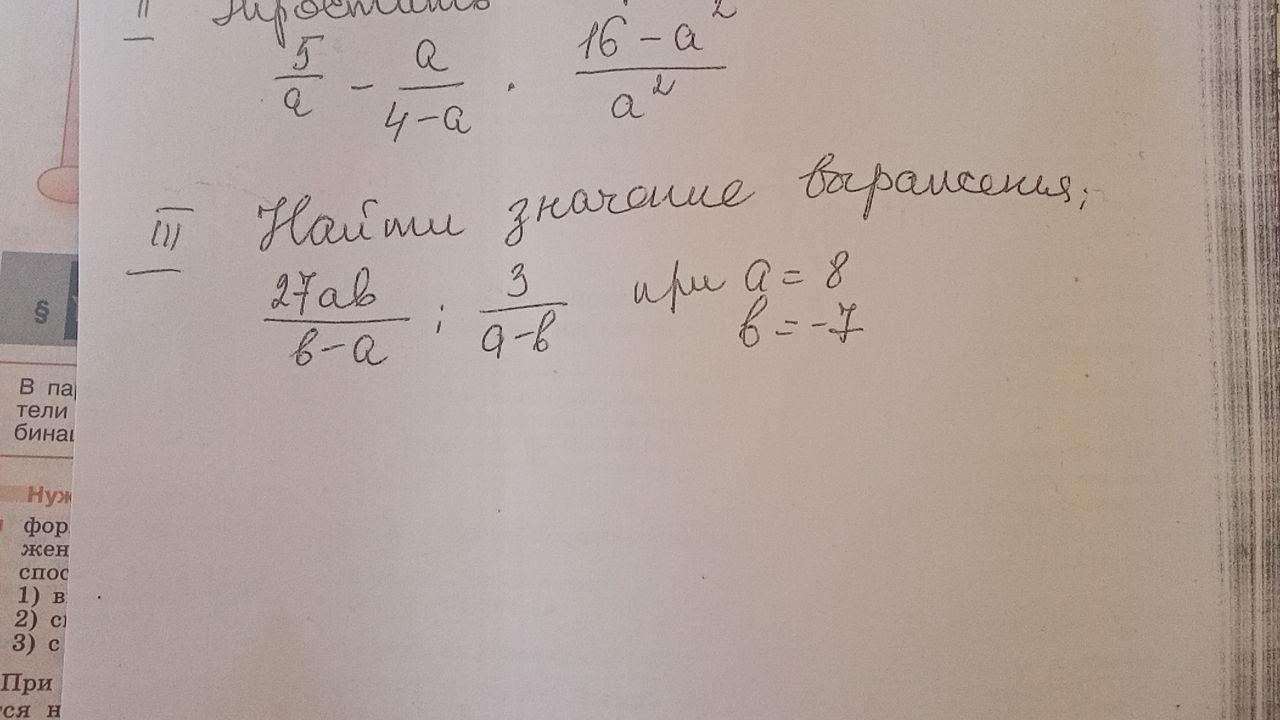 II Упростить
5/a - a/(4-a) · (16-a²)/a²
III Найти значение выражения;
27ab/(b-a) : 3/(a-b) при a = 8
b = -7
§
В па
тели
бинац
Нуж
фор
жен
спос
1) в
2) с
3) с
При
тся н